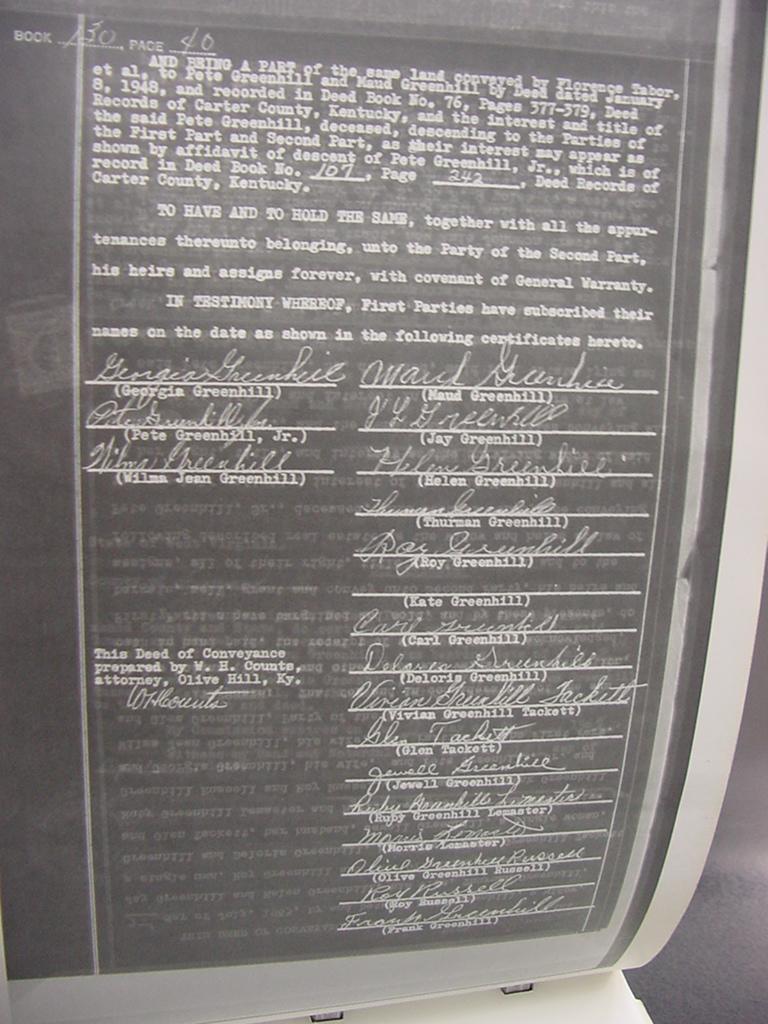 BOOK 130, PAGE 40
AND BEING A PART of the same land conveyed by Florence Tabor,
et al, to Pete Greenhill and Maud Greenhill by Deed dated January
8, 1948, and recorded in Deed Book No. 76, Pages 377-379, Deed
Records of Carter County, Kentucky, and the interest and title of
the said Pete Greenhill, deceased, descending to the Parties of
the First Part and Second Part, as their interest may appear as
shown by affidavit of descent of Pete Greenhill, Jr., which is of
record in Deed Book No. 107, Page 242, Deed Records of
Carter County, Kentucky.
TO HAVE AND TO HOLD THE SAME, together with all the appur-
tenances thereunto belonging, unto the Party of the Second Part,
his heirs and assigns forever, with covenant of General Warranty.
IN TESTIMONY WHEREOF, First Parties have subscribed their
names on the date as shown in the following certificates hereto.
Georgia Greenhill Maud Greenhill
(Georgia Greenhill) (Maud Greenhill)
Pete Greenhill Jr. J L Greenhill
(Pete Greenhill, Jr.) (Jay Greenhill)
Wilma Greenhill Helen Greenhill
(Wilma Jean Greenhill) (Helen Greenhill)
Thurman Greenhill
(Thurman Greenhill)
Roy Greenhill
(Roy Greenhill)
(Kate Greenhill)
Carl Greenhill
(Carl Greenhill)
This Deed of Conveyance
prepared by W. H. Counts,
attorney, Olive Hill, Ky.
WHCounts
Delores Greenhill
(Deloris Greenhill)
Vivian Greenhill Tackett
(Vivian Greenhill Tackett)
Glen Tackett
(Glen Tackett)
Jewell Greenhill
(Jewell Greenhill)
Ruby Greenhill Lemaster
(Ruby Greenhill Lemaster)
Morris Lemaster
(Morris Lemaster)
Olive Greenhill Russell
(Olive Greenhill Russell)
Roy Russell
(Roy Russell)
Frank Greenhill
(Frank Greenhill)